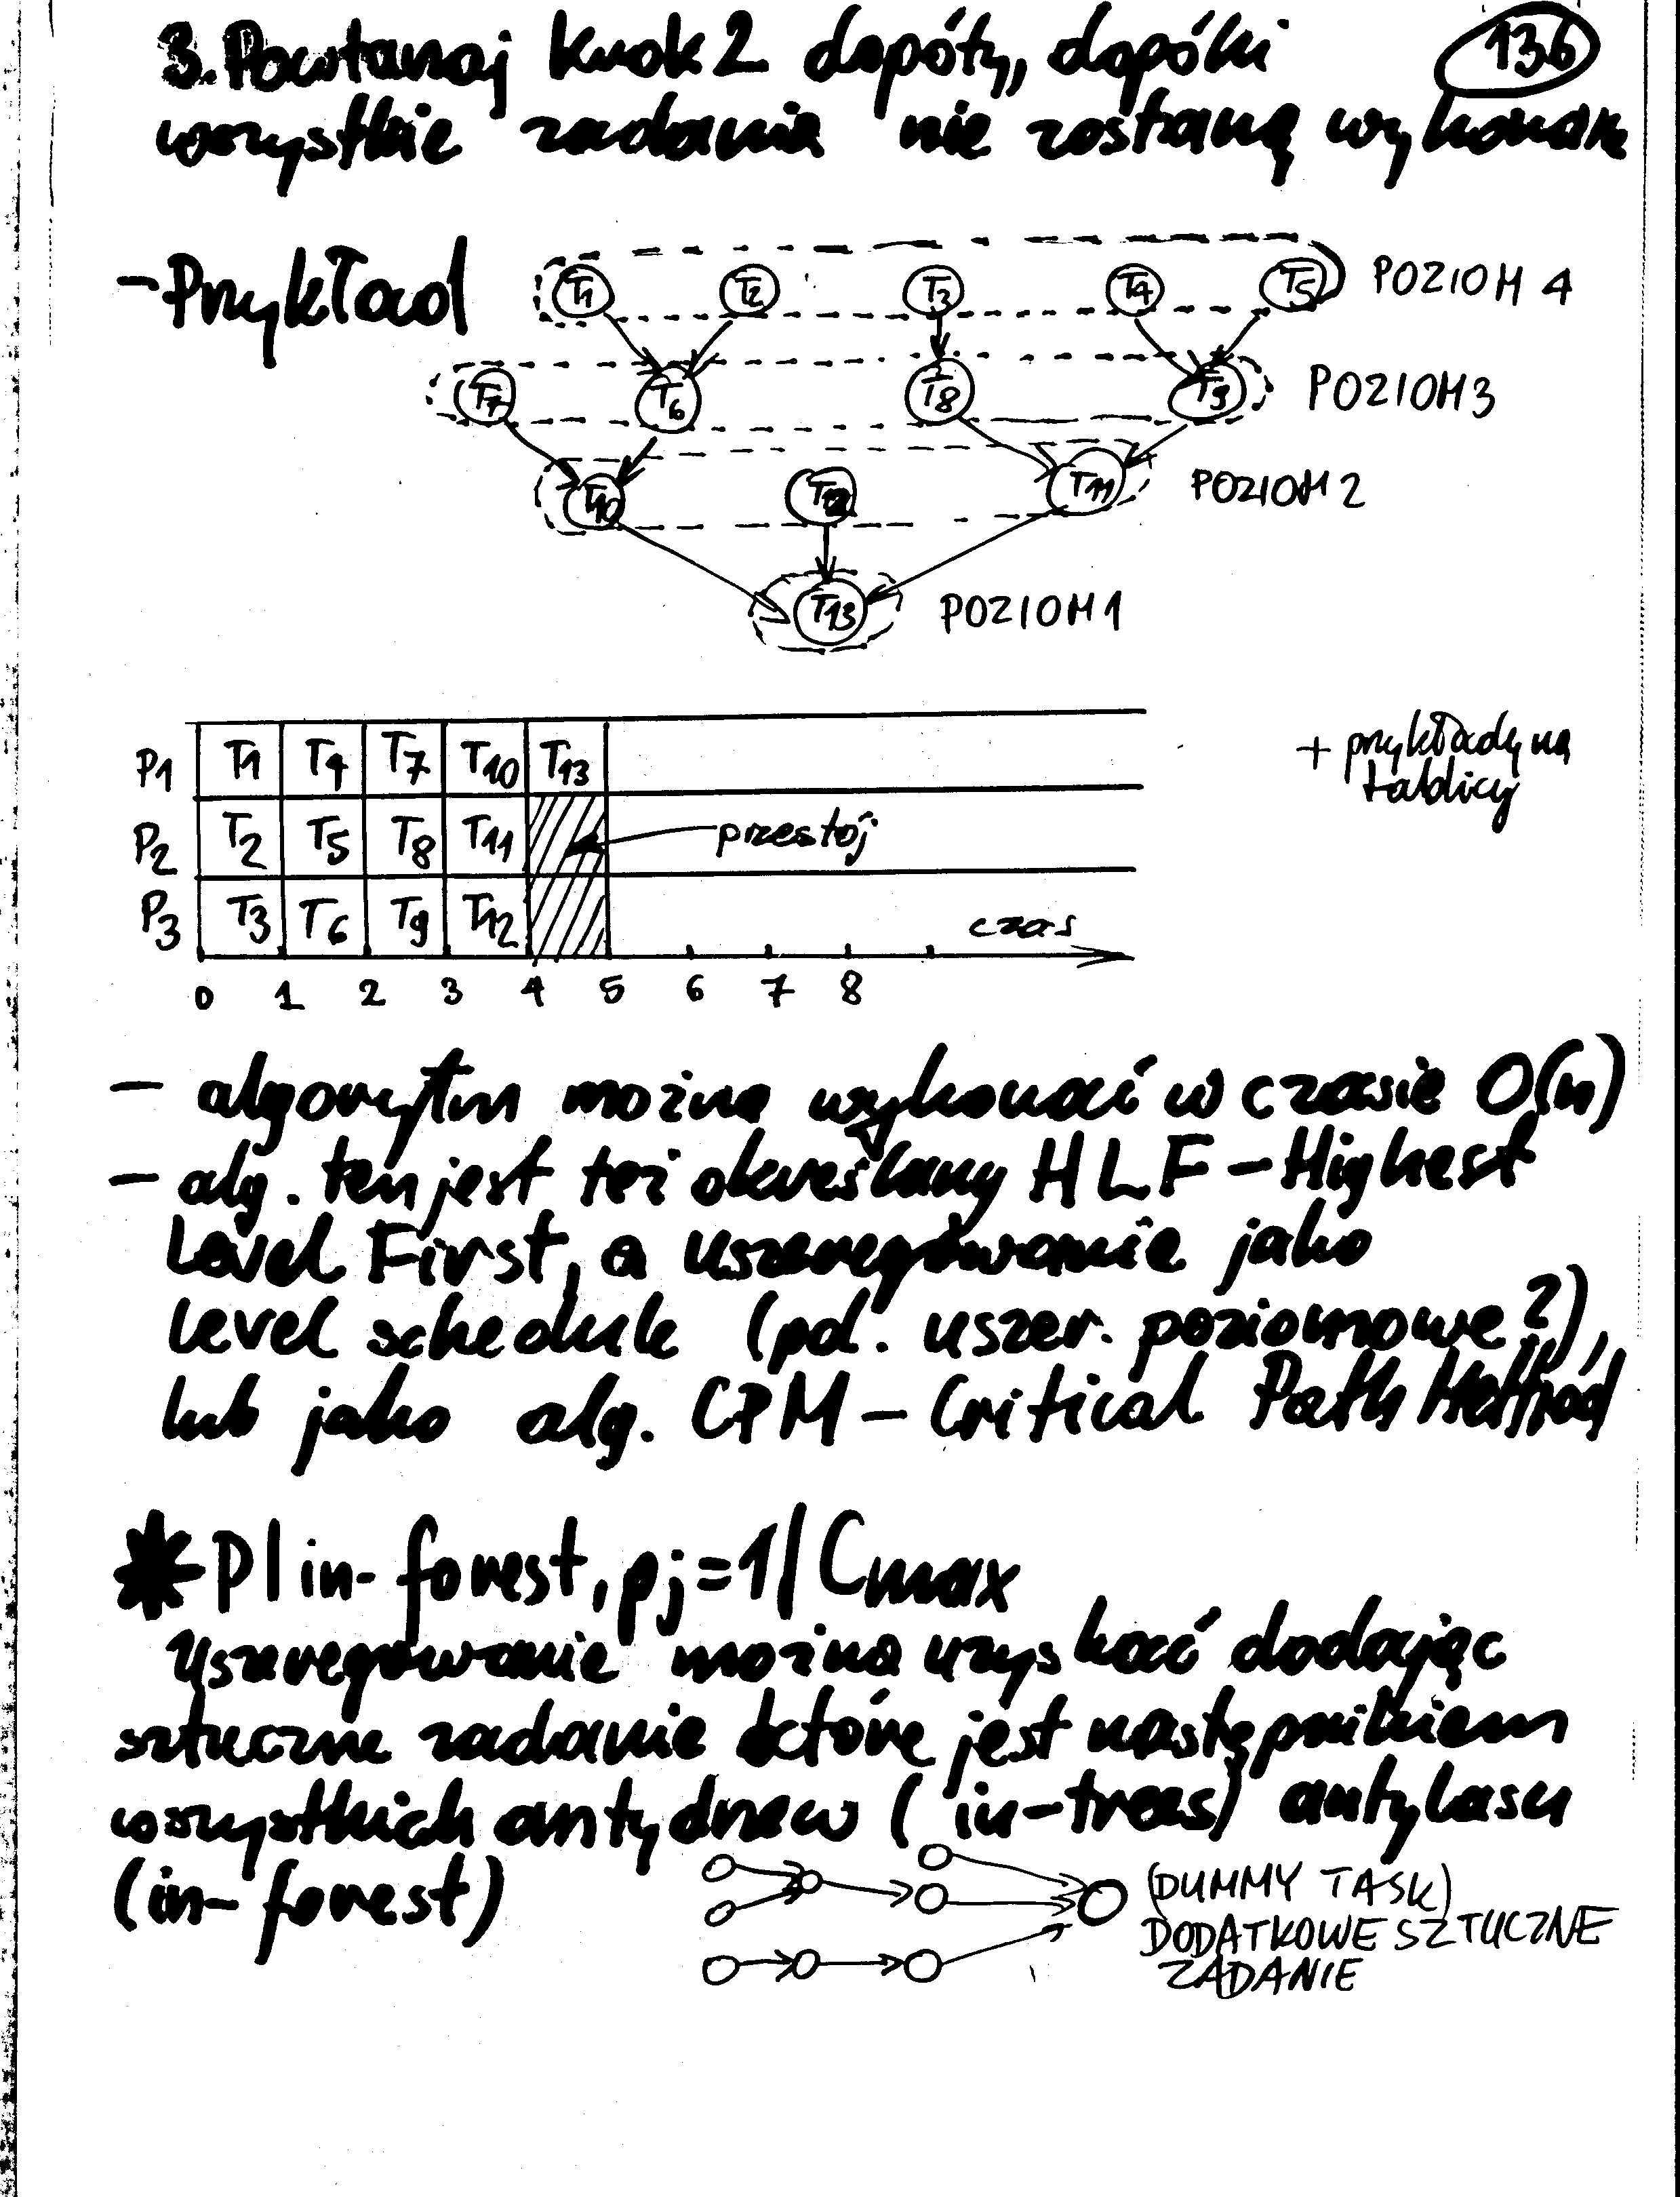 3. Powtarzaj krok 2 dopóty, dopóki
136
wszystkie zadania nie zostaną wykonane
- Przykład
T1 T2 T3 T4 T5 POZIOM 4
T7 T6 T8 T9 POZIOM 3
T10 T12 T11 POZIOM 2
T13 POZIOM 1
P1 T1 T4 T7 T10 T13
+ przykłady na
tablicy
P2 T2 T5 T8 T11 przestój
P3 T3 T6 T9 T12 czas
0 1 2 3 4 5 6 7 8
- algorytm można wykonać w czasie O(n)
- alg. ten jest też określany HLF - Highest
Level First, a uszeregowanie jako
level schedule (pd. uszer. poziomowe?),
lub jako alg. CPM - Critical Path Method
* P | in-forest, pj=1 | Cmax
Uszeregowanie można uzyskać dodając
sztuczne zadanie które jest następnikiem
wszystkich antydrzew (in-trees) antylasu
(in-forest)
(DUMMY TASK)
DODATKOWE SZTUCZNE
ZADANIE